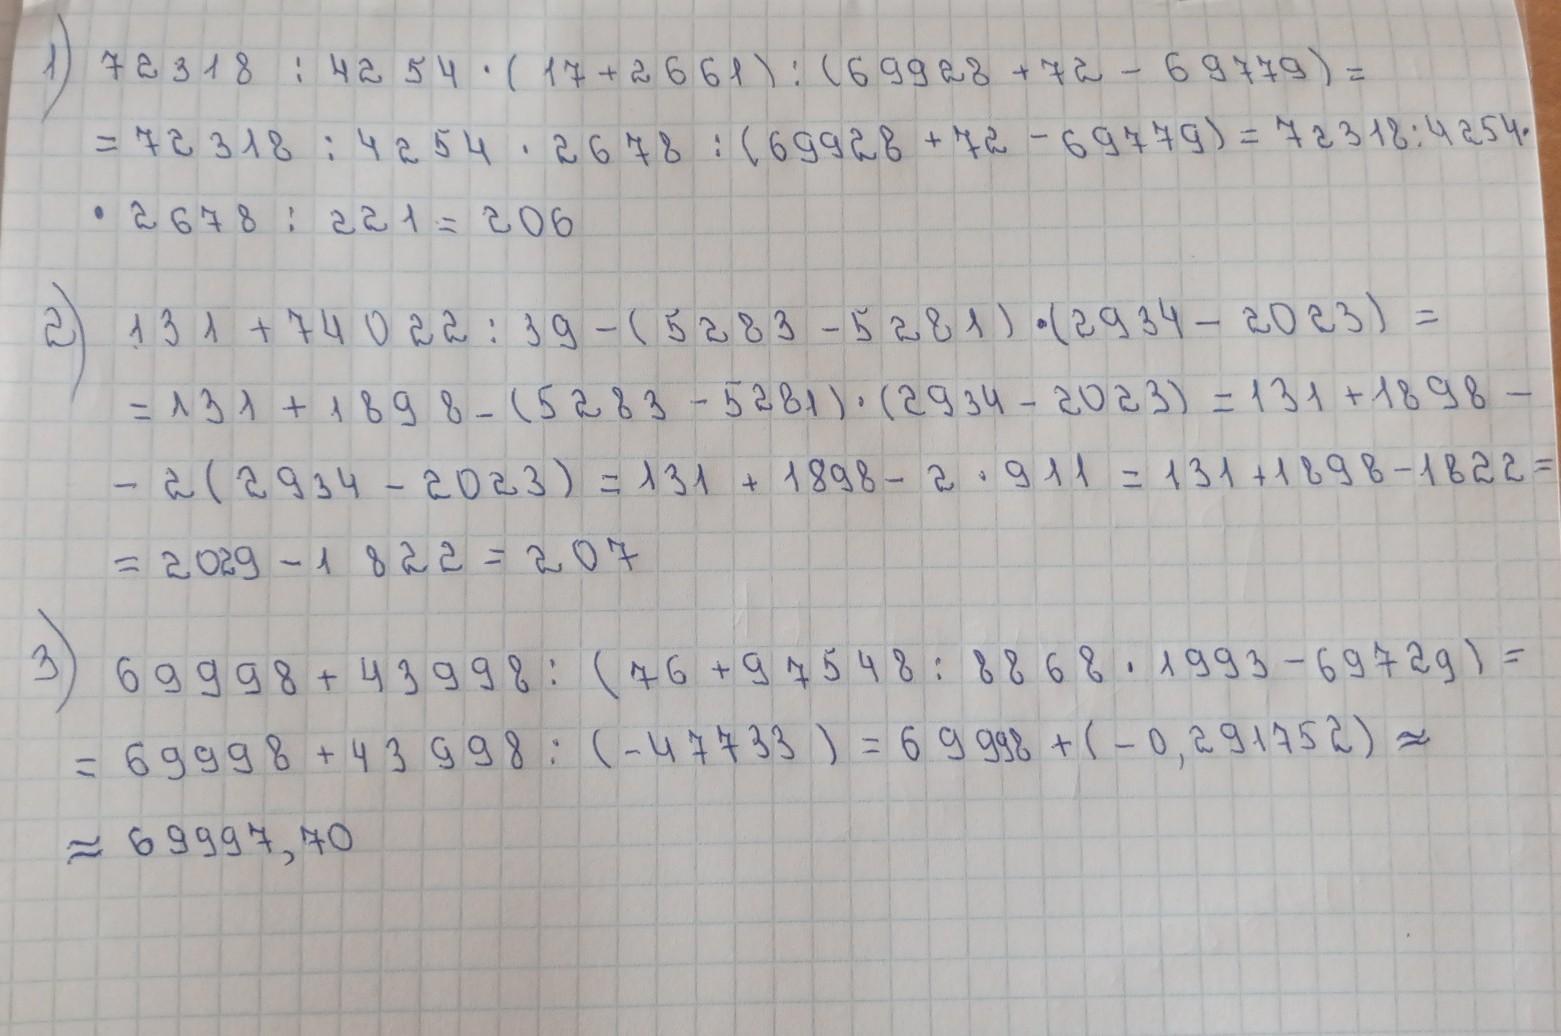 1) 72318 : 4254 · (17 + 2661) : (69928 + 72 - 69779) =
= 72318 : 4254 · 2678 : (69928 + 72 - 69779) = 72318 : 4254 ·
· 2678 : 221 = 206
2) 131 + 74022 : 39 - (5283 - 5281) · (2934 - 2023) =
= 131 + 1898 - (5283 - 5281) · (2934 - 2023) = 131 + 1898 -
- 2 (2934 - 2023) = 131 + 1898 - 2 · 911 = 131 + 1898 - 1822 =
= 2029 - 1822 = 207
3) 69998 + 43998 : (76 + 97548 : 8868 · 1993 - 69729) =
= 69998 + 43998 : (-47733) = 69998 + (-0,291752) ≈
≈ 69997,70